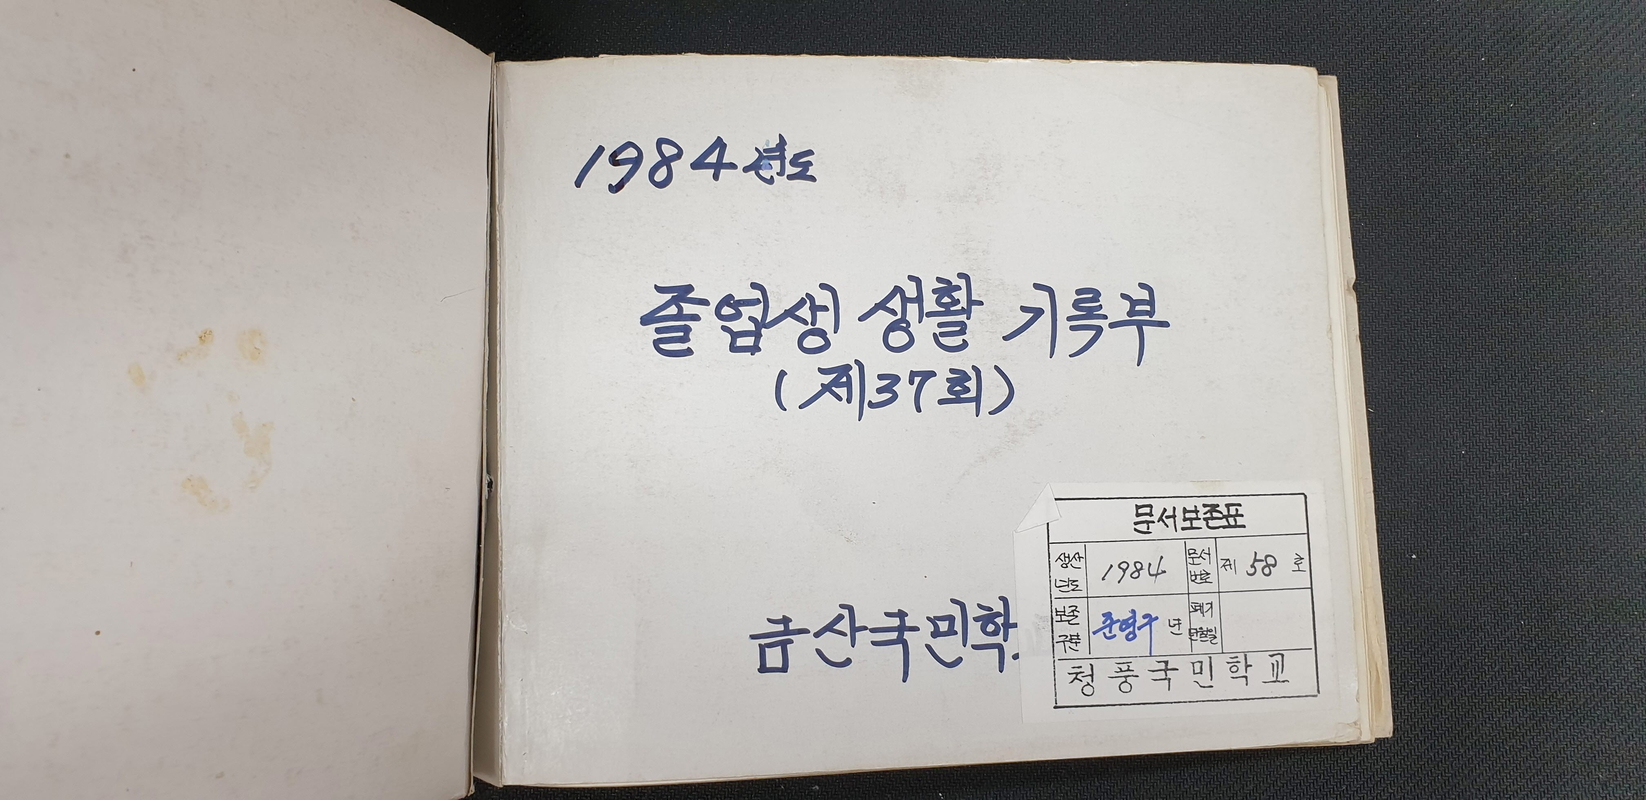 1984년도
졸업생 생활 기록부
(제37회)
금산국민학
문서보존표
생산년도 1984 문서번호 제 58 호
보존구분 준영구 년 폐기
청풍국민학교